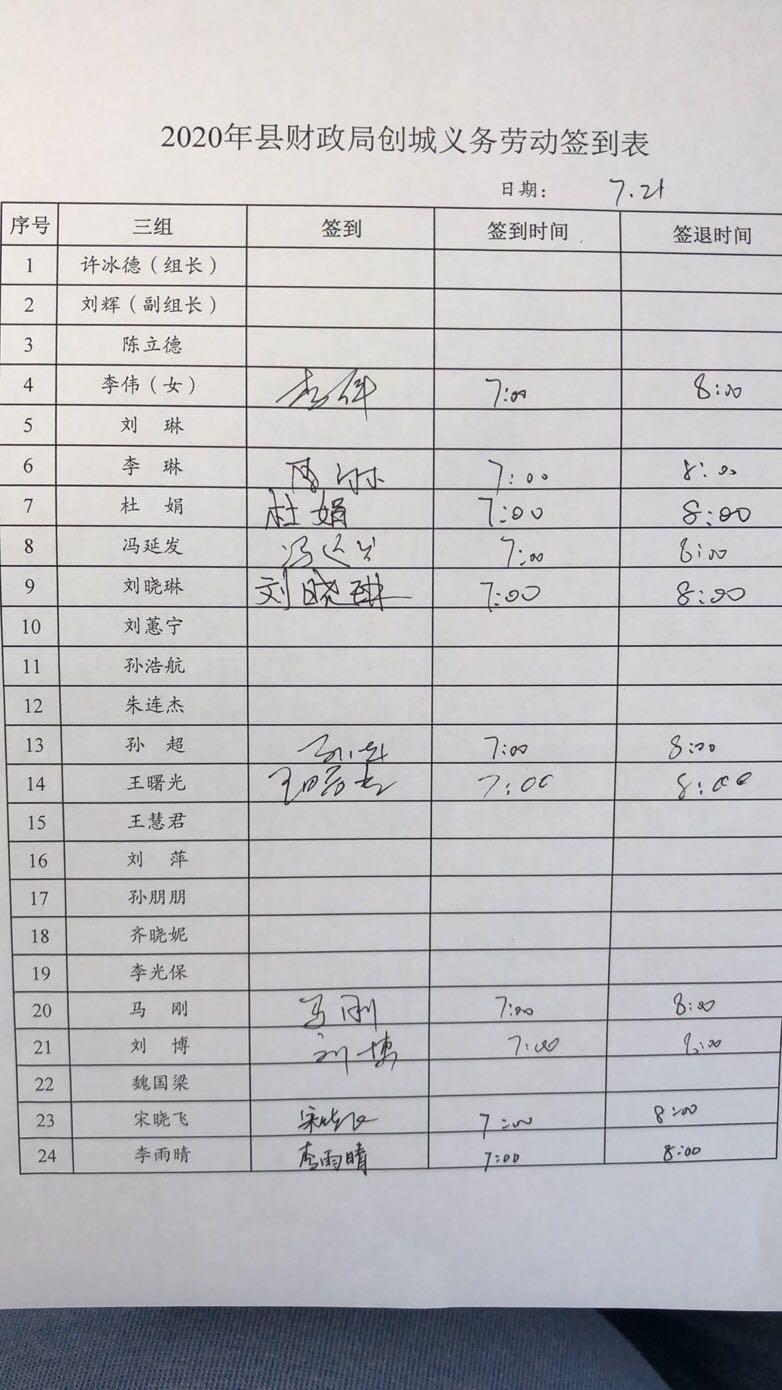 2020年县财政局创城义务劳动签到表
日期： 7.21
序号 三组 签到 签到时间 签退时间
1 许冰德（组长）
2 刘辉（副组长）
3 陈立德
4 李伟（女） 李伟 7:00 8:00
5 刘 琳
6 李 琳 7:00 8:00
7 杜 娟 杜娟 7:00 8:00
8 冯延发 冯延发 7:00 8:00
9 刘晓琳 刘晓琳 7:00 8:00
10 刘蕙宁
11 孙浩航
12 朱连杰
13 孙 超 孙超 7:00 8:00
14 王曙光 王曙光 7:00 8:00
15 王慧君
16 刘 萍
17 孙朋朋
18 齐晓妮
19 李光保
20 马 刚 马刚 7:00 8:00
21 刘 博 刘博 7:00 8:00
22 魏国梁
23 宋晓飞 宋晓飞 7:00 8:00
24 李雨晴 李雨晴 7:00 8:00